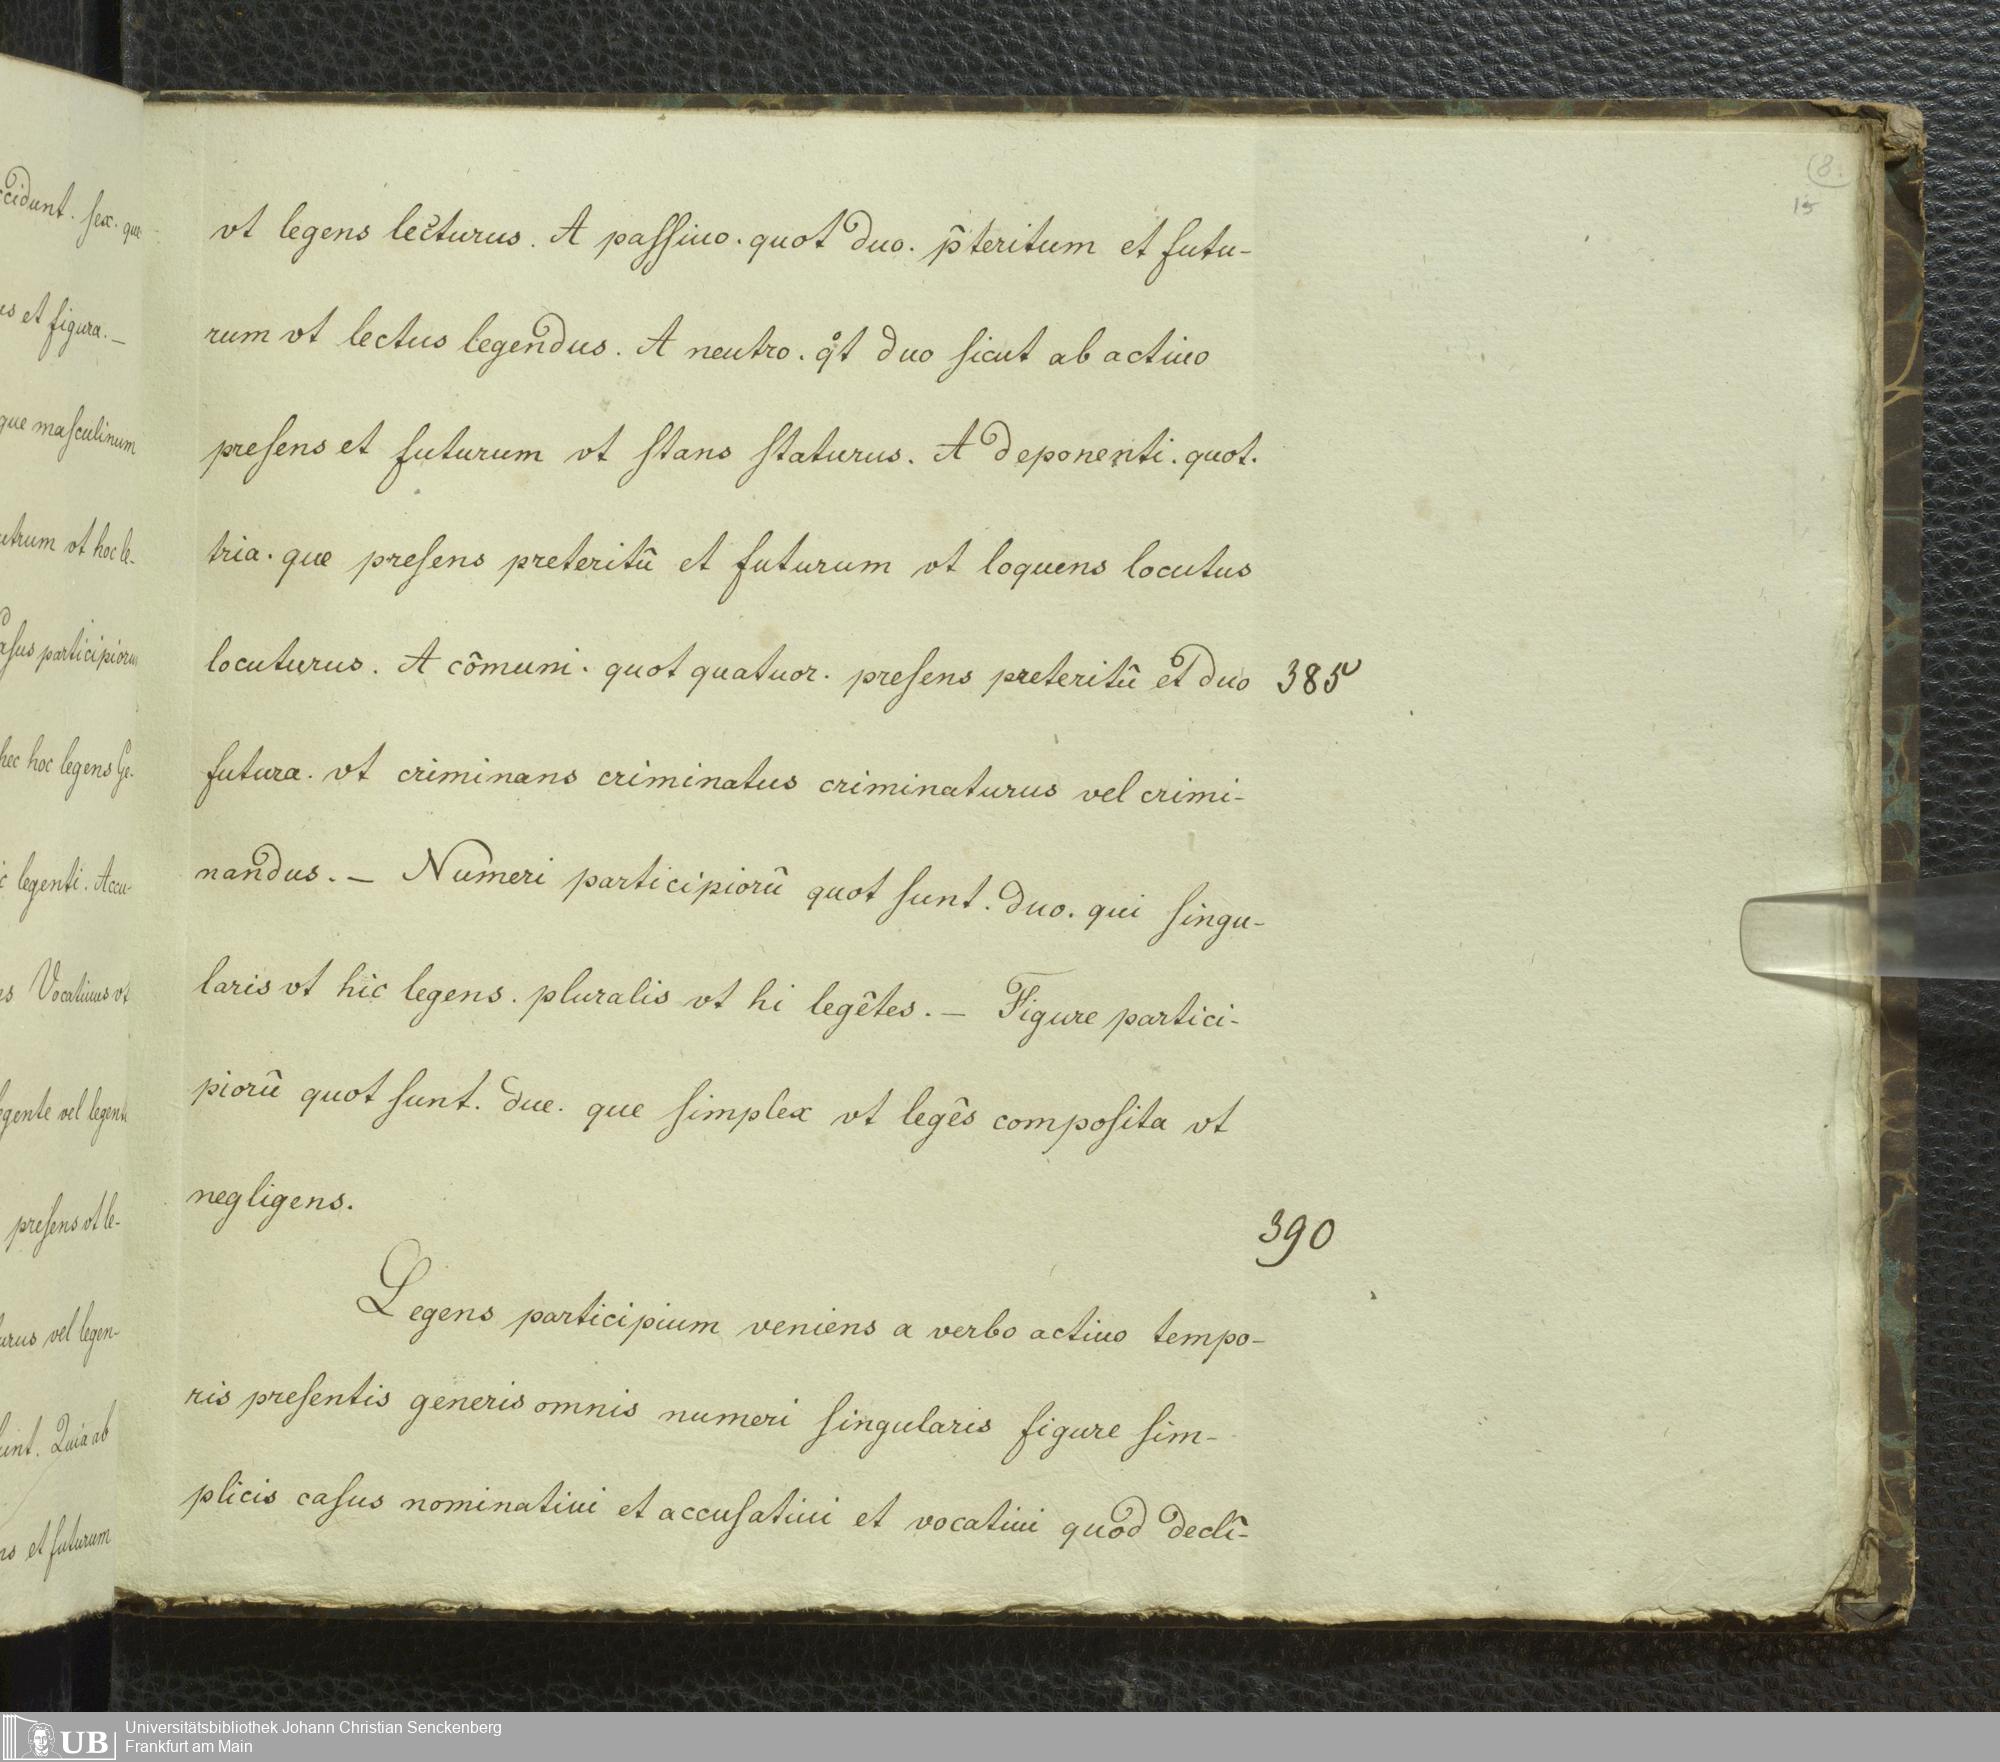 cidunt. sex. que
et figura. —
que masculinum
utrum vt hoc le-
asus participioru
hec hoc legens Ge-
legenti. Accu-
Vocatiuus vt
egente vel legent
presens vt le-
urus vel legen-
sunt. Quia ab
et futurum
(8.
15
vt legens lecturus. A passiuo. quot duo. p̄teritum et futu-
rum vt lectus legendus. A neutro. q̊t duo sicut ab actiuo
presens et futurum vt stans staturus. A deponenti. quot.
tria. que presens preteritū et futurum vt loquens locutus
locuturus. A cōmuni. quot quatuor. presens preteritū et duo 385
futura. vt criminans criminatus criminaturus vel crimi-
nandus. — Numeri participiorū quot sunt. duo. qui singu-
laris vt hic legens. pluralis vt hi legētes. — Figure partici-
piorū quot sunt. due. que simplex vt legēs composita vt
negligens.
390
Legens participium veniens a verbo actiuo tempo-
ris presentis generis omnis numeri singularis figure sim-
plicis casus nominatiui et accusatiui et vocatiui quod declī-
UB Universitätsbibliothek Johann Christian Senckenberg
Frankfurt am Main